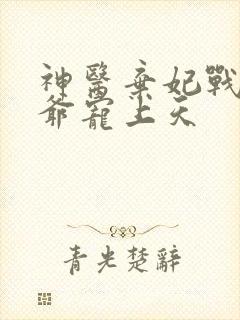 神醫棄妃戰
爺寵上天
青光楚辭